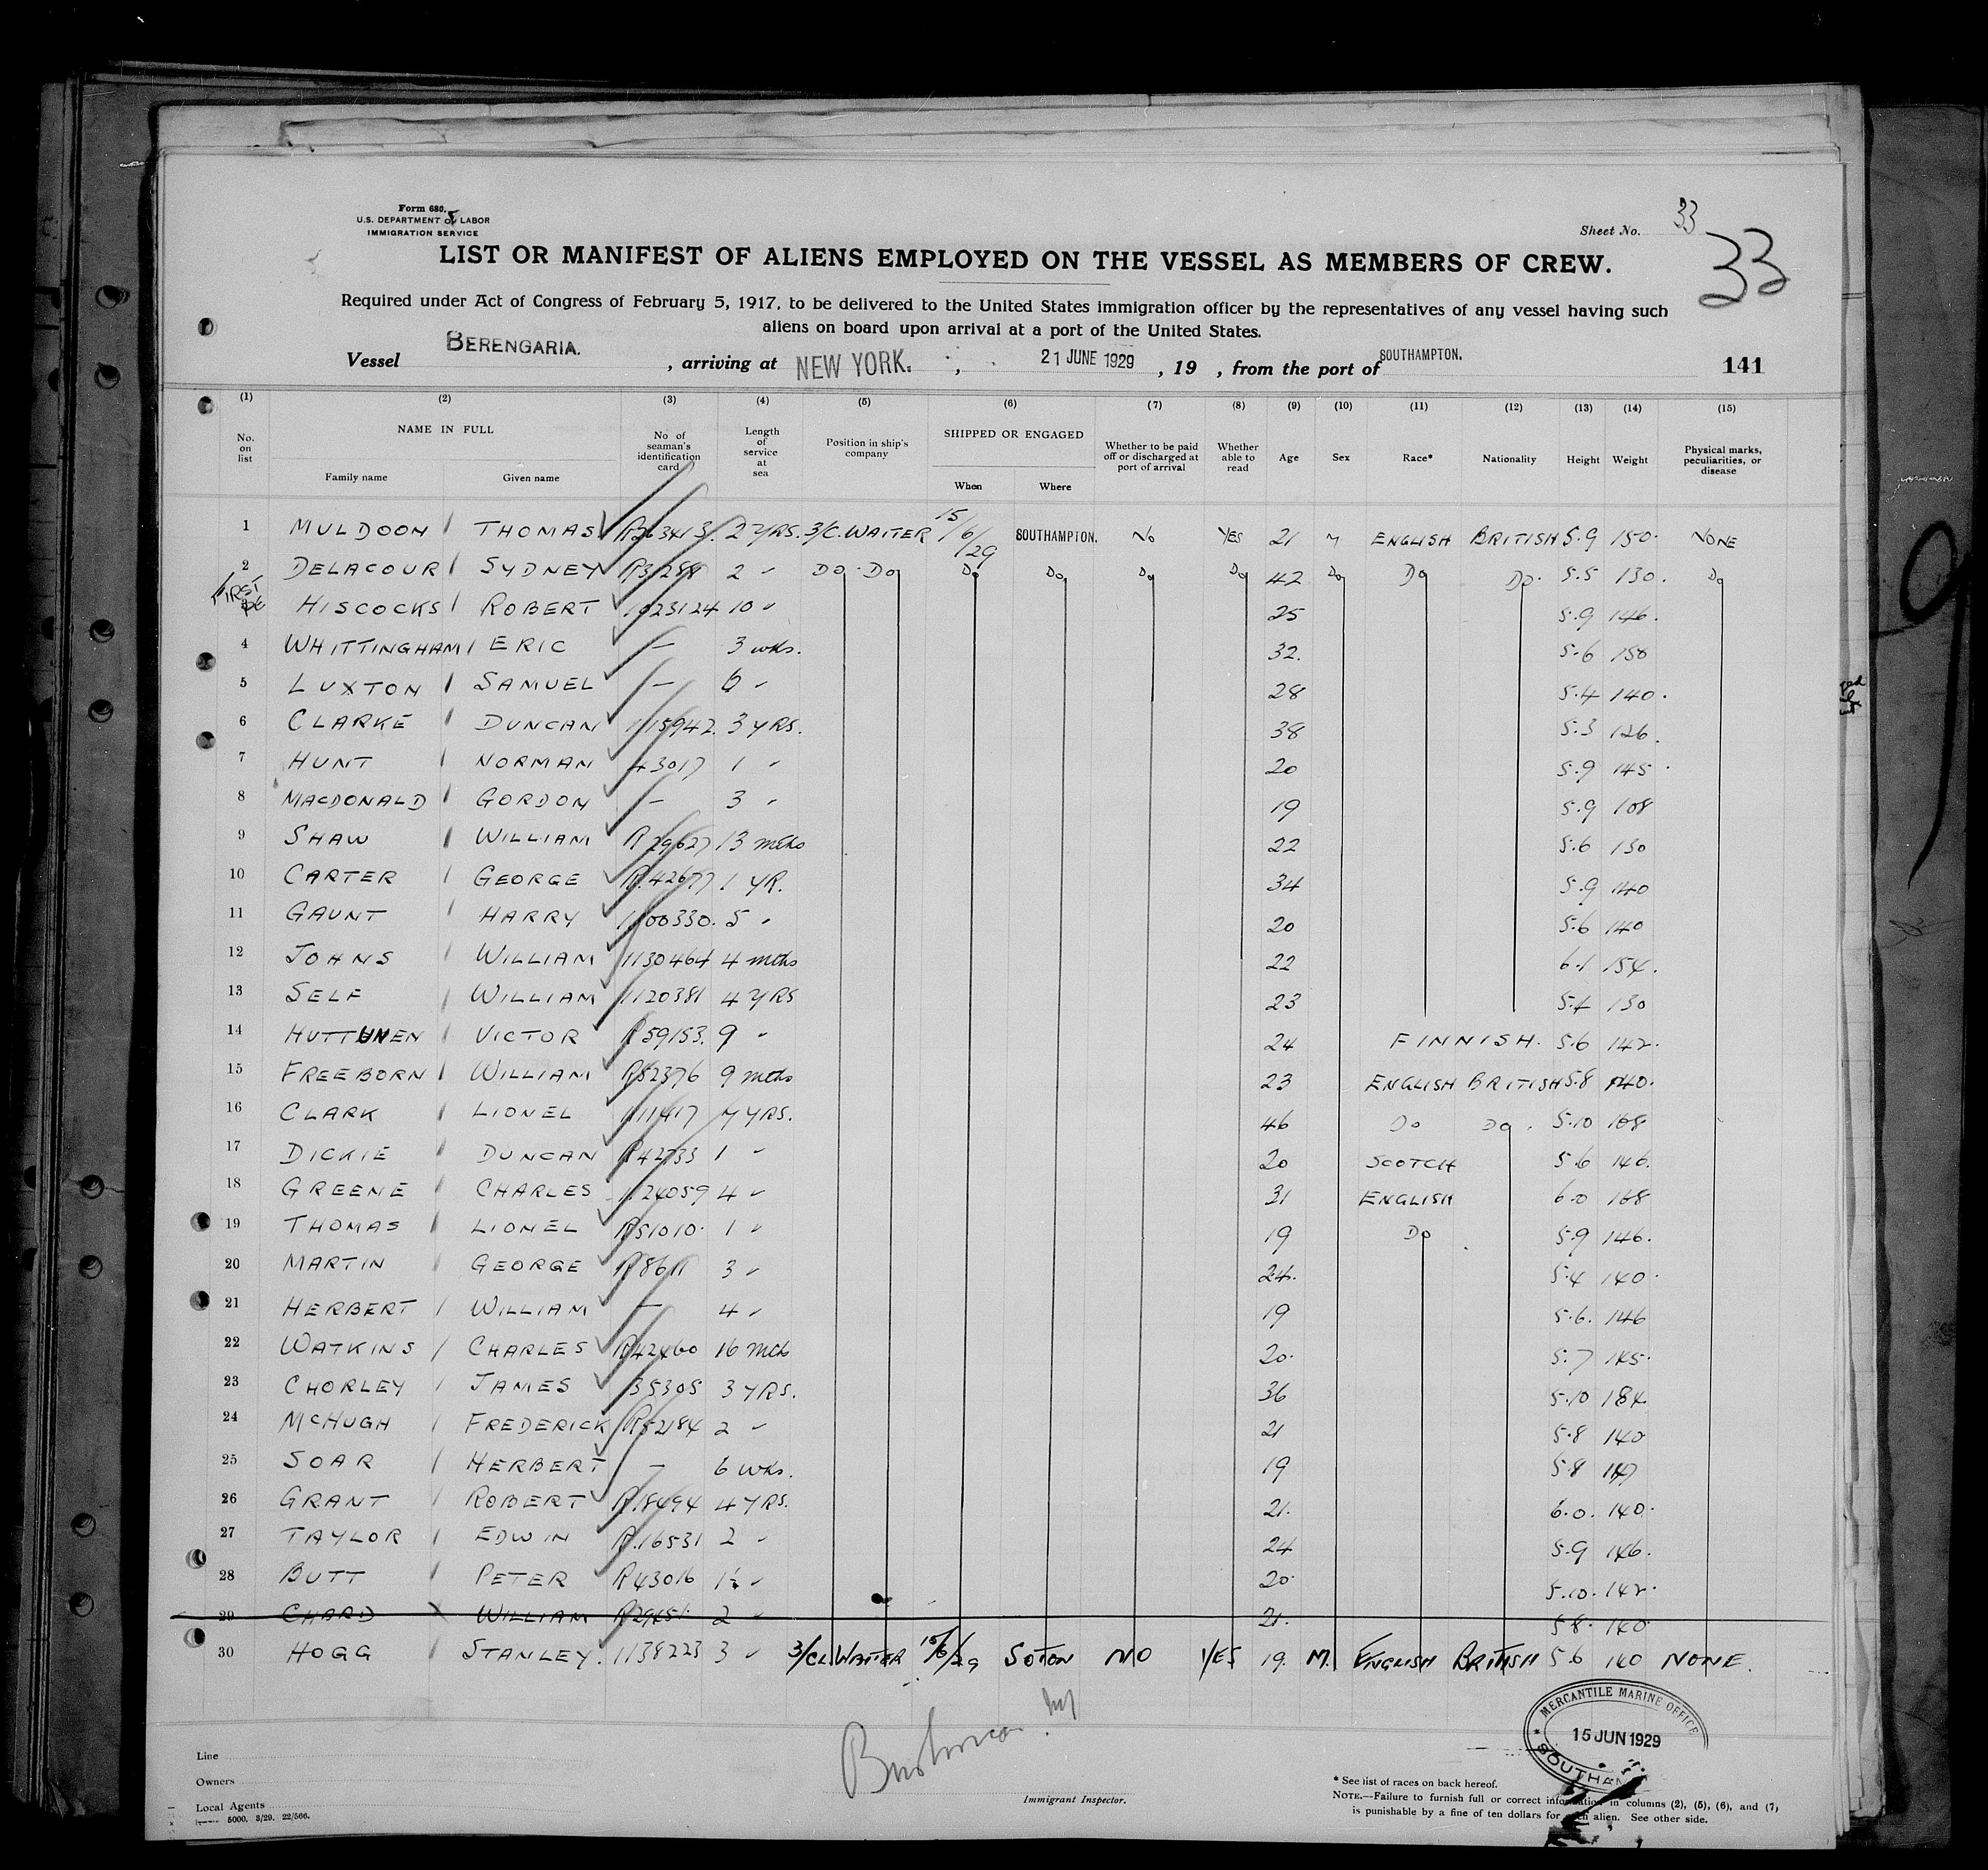 Form 680.
U.S. DEPARTMENT OF LABOR
IMMIGRATION SERVICE
Sheet No. 33
33
LIST OR MANIFEST OF ALIENS EMPLOYED ON THE VESSEL AS MEMBERS OF CREW.
Required under Act of Congress of February 5, 1917, to be delivered to the United States immigration officer by the representatives of any vessel having such
aliens on board upon arrival at a port of the United States.
Vessel BERENGARIA. , arriving at NEW YORK. , 21 JUNE 1929 , 19 , from the port of SOUTHAMPTON. 141
(1) (2) (3) (4) (5) (6) (7) (8) (9) (10) (11) (12) (13) (14) (15)
No. on list NAME IN FULL Family name Given name No of seaman's identification card Length of service at sea Position in ship's company SHIPPED OR ENGAGED When Where Whether to be paid off or discharged at port of arrival Whether able to read Age Sex Race* Nationality Height Weight Physical marks, peculiarities, or disease
1 MULDOON THOMAS 2 YRS. 3/C. WAITER 15/6/29 SOUTHAMPTON. No YES 21 M ENGLISH BRITISH 5.9 150. NONE
2 DELACOUR SYDNEY 2 " Do Do Do Do Do Do 42 Do Do Do. 5.5 130. Do
HISCOCKS ROBERT 1023124 10 " 25 5.9 146.
4 WHITTINGHAM ERIC — 3 wks. 32. 5.6 158
5 LUXTON SAMUEL — 6 " 28 5.4 140.
6 CLARKE DUNCAN 1115942 3 YRS. 38 5.3 126.
7 HUNT NORMAN 43017 1 " 20 5.9 145.
8 MACDONALD GORDON — 3 " 19 5.9 108
9 SHAW WILLIAM R 29627 13 mths 22 5.6 130
10 CARTER GEORGE R.42677 1 YR. 34 5.9 140
11 GAUNT HARRY 1100330. 5 " 20 5.6 140
12 JOHNS WILLIAM 1130464 4 mths 22 6.1 154.
13 SELF WILLIAM 1120381 4 YRS 23 5.4 130
14 HUTTUNEN VICTOR R59153. 9 " 24 FINNISH. 5.6 142.
15 FREEBORN WILLIAM R52376 9 mths 23 ENGLISH BRITISH 5.8 140.
16 CLARK LIONEL 111417 7 YRS. 46 Do Do. 5.10 168
17 DICKIE DUNCAN R42733 1 " 20 SCOTCH 5.6 140.
18 GREENE CHARLES 1124059 4 " 31 ENGLISH 6.0 168
19 THOMAS LIONEL R51010. 1 " 19 Do 5.9 146.
20 MARTIN GEORGE R8611 3 " 24. 5.4 140.
21 HERBERT WILLIAM — 4 " 19 5.6. 146
22 WATKINS CHARLES R42460 16 mths 20. 5.7 145.
23 CHORLEY JAMES 35305 3 YRS. 36 5.10 184.
24 McHUGH FREDERICK R52184 2 " 21 5.8 140
25 SOAR HERBERT — 6 wks. 19 5.8 147
26 GRANT ROBERT R.18494 4 YRS. 21. 6.0. 140.
27 TAYLOR EDWIN R.16531 2 " 24 5.9 146.
28 BUTT PETER R43016 1½ " 20. 5.10. 142.
29 CHARD WILLIAM 2 " 21. 5.8. 140
30 HOGG STANLEY. 1138223 3 " 3/CL WAITER 15/6/29 SOTON NO YES 19. M. ENGLISH BRITISH 5.6 140 NONE.
MERCANTILE MARINE OFFICE
15 JUN 1929
Line
Owners
Local Agents
5000. 3/29. 22/566.
Immigrant Inspector.
* See list of races on back hereof.
NOTE.—Failure to furnish full or correct information in columns (2), (5), (6), and (7,
is punishable by a fine of ten dollars for each alien. See other side.